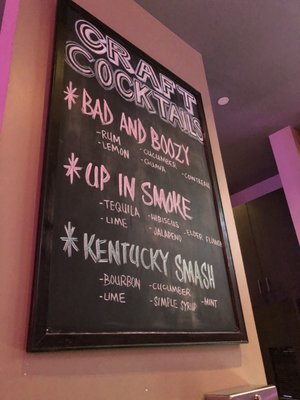 CRAFT
COCKTAILS
* BAD AND BOOZY
-RUM -CUCUMBER -COINTREAU
-LEMON -GUAVA
* UP IN SMOKE
-TEQUILA -HIBISCUS -ELDER FLOWER
-LIME -JALAPEÑO
* KENTUCKY SMASH
-BOURBON -CUCUMBER
-LIME -SIMPLE SYRUP -MINT